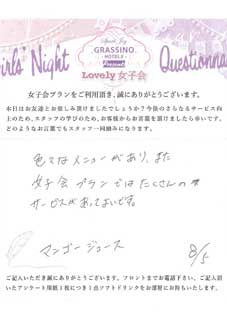 Girls' Night
Questionna
Spend Joy
GRASSINO
HOTELS
Present
Lovely 女子会
女子会プランをご利用頂き、誠にありがとうございます。
本日はお友達とお愉しみ頂けましたでしょうか?今後のさらなるサービス向
上のため、スタッフの学びのため、お客様からお言葉を頂けましたら幸いです。
どのようなお言葉でもスタッフ一同励みになります。
色々なメニューがあり、また
女子会プランではたくさんの
サービスがあってよいです。
マンゴージュース
8/5
ご記入いただき誠にありがとうございます。フロントまでお電話下さい。ご記入頂
いたアンケート用紙1枚につき1点ソフトドリンクをお部屋にお持ちいたします。